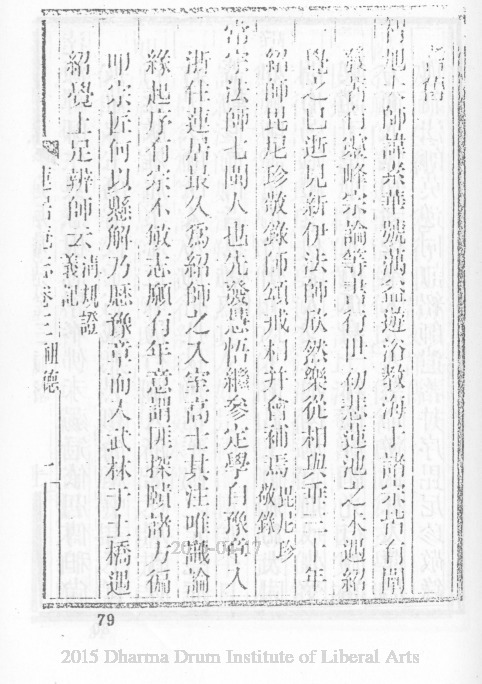 耆舊
智旭大師諱素華號蕅益遊浴教海于諸宗皆有闡
發著有靈峰宗論等書行世初悲蓮池之未遇紹
覺之已逝見新伊法師欣然樂從相與垂三十年
紹師毘尼珍敬錄師頌戒相并會補焉毘尼珍敬錄
宗法師七閩人也先發慧悟繼參定學自豫章入
浙住蓮居最久為紹師之入室高士其注唯識論
緣起序有宗不敏志願有年意謂匪探賾諸方徧
叩宗匠何以懸解乃歷豫章而入武林于土橋遇
紹覺上足辨師云清規證義記
蓮居菴志卷三 祖德 一
79
2015 Dharma Drum Institute of Liberal Arts